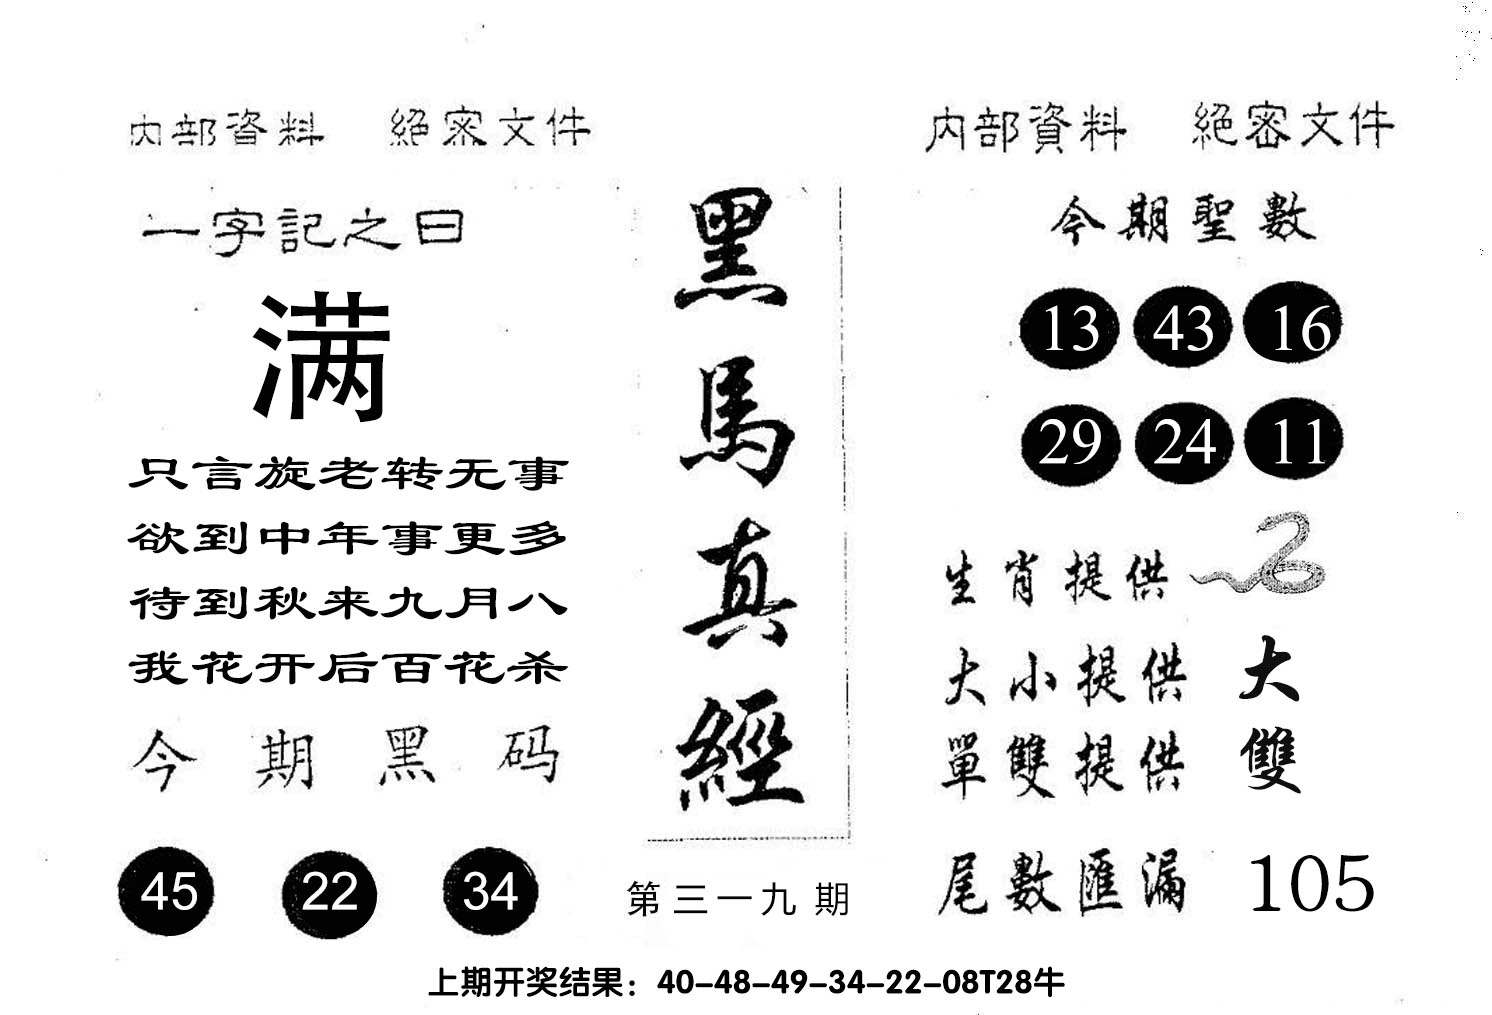 内部資料 絕密文件
一字記之曰
满
只言旋老转无事
欲到中年事更多
待到秋来九月八
我花开后百花杀
今期黑码
45 22 34
黑馬真經
第三一九期
内部資料 絕密文件
今期聖數
13 43 16
29 24 11
生肖提供
大小提供 大
單雙提供 雙
尾數匯漏 105
上期开奖结果：40-48-49-34-22-08T28牛